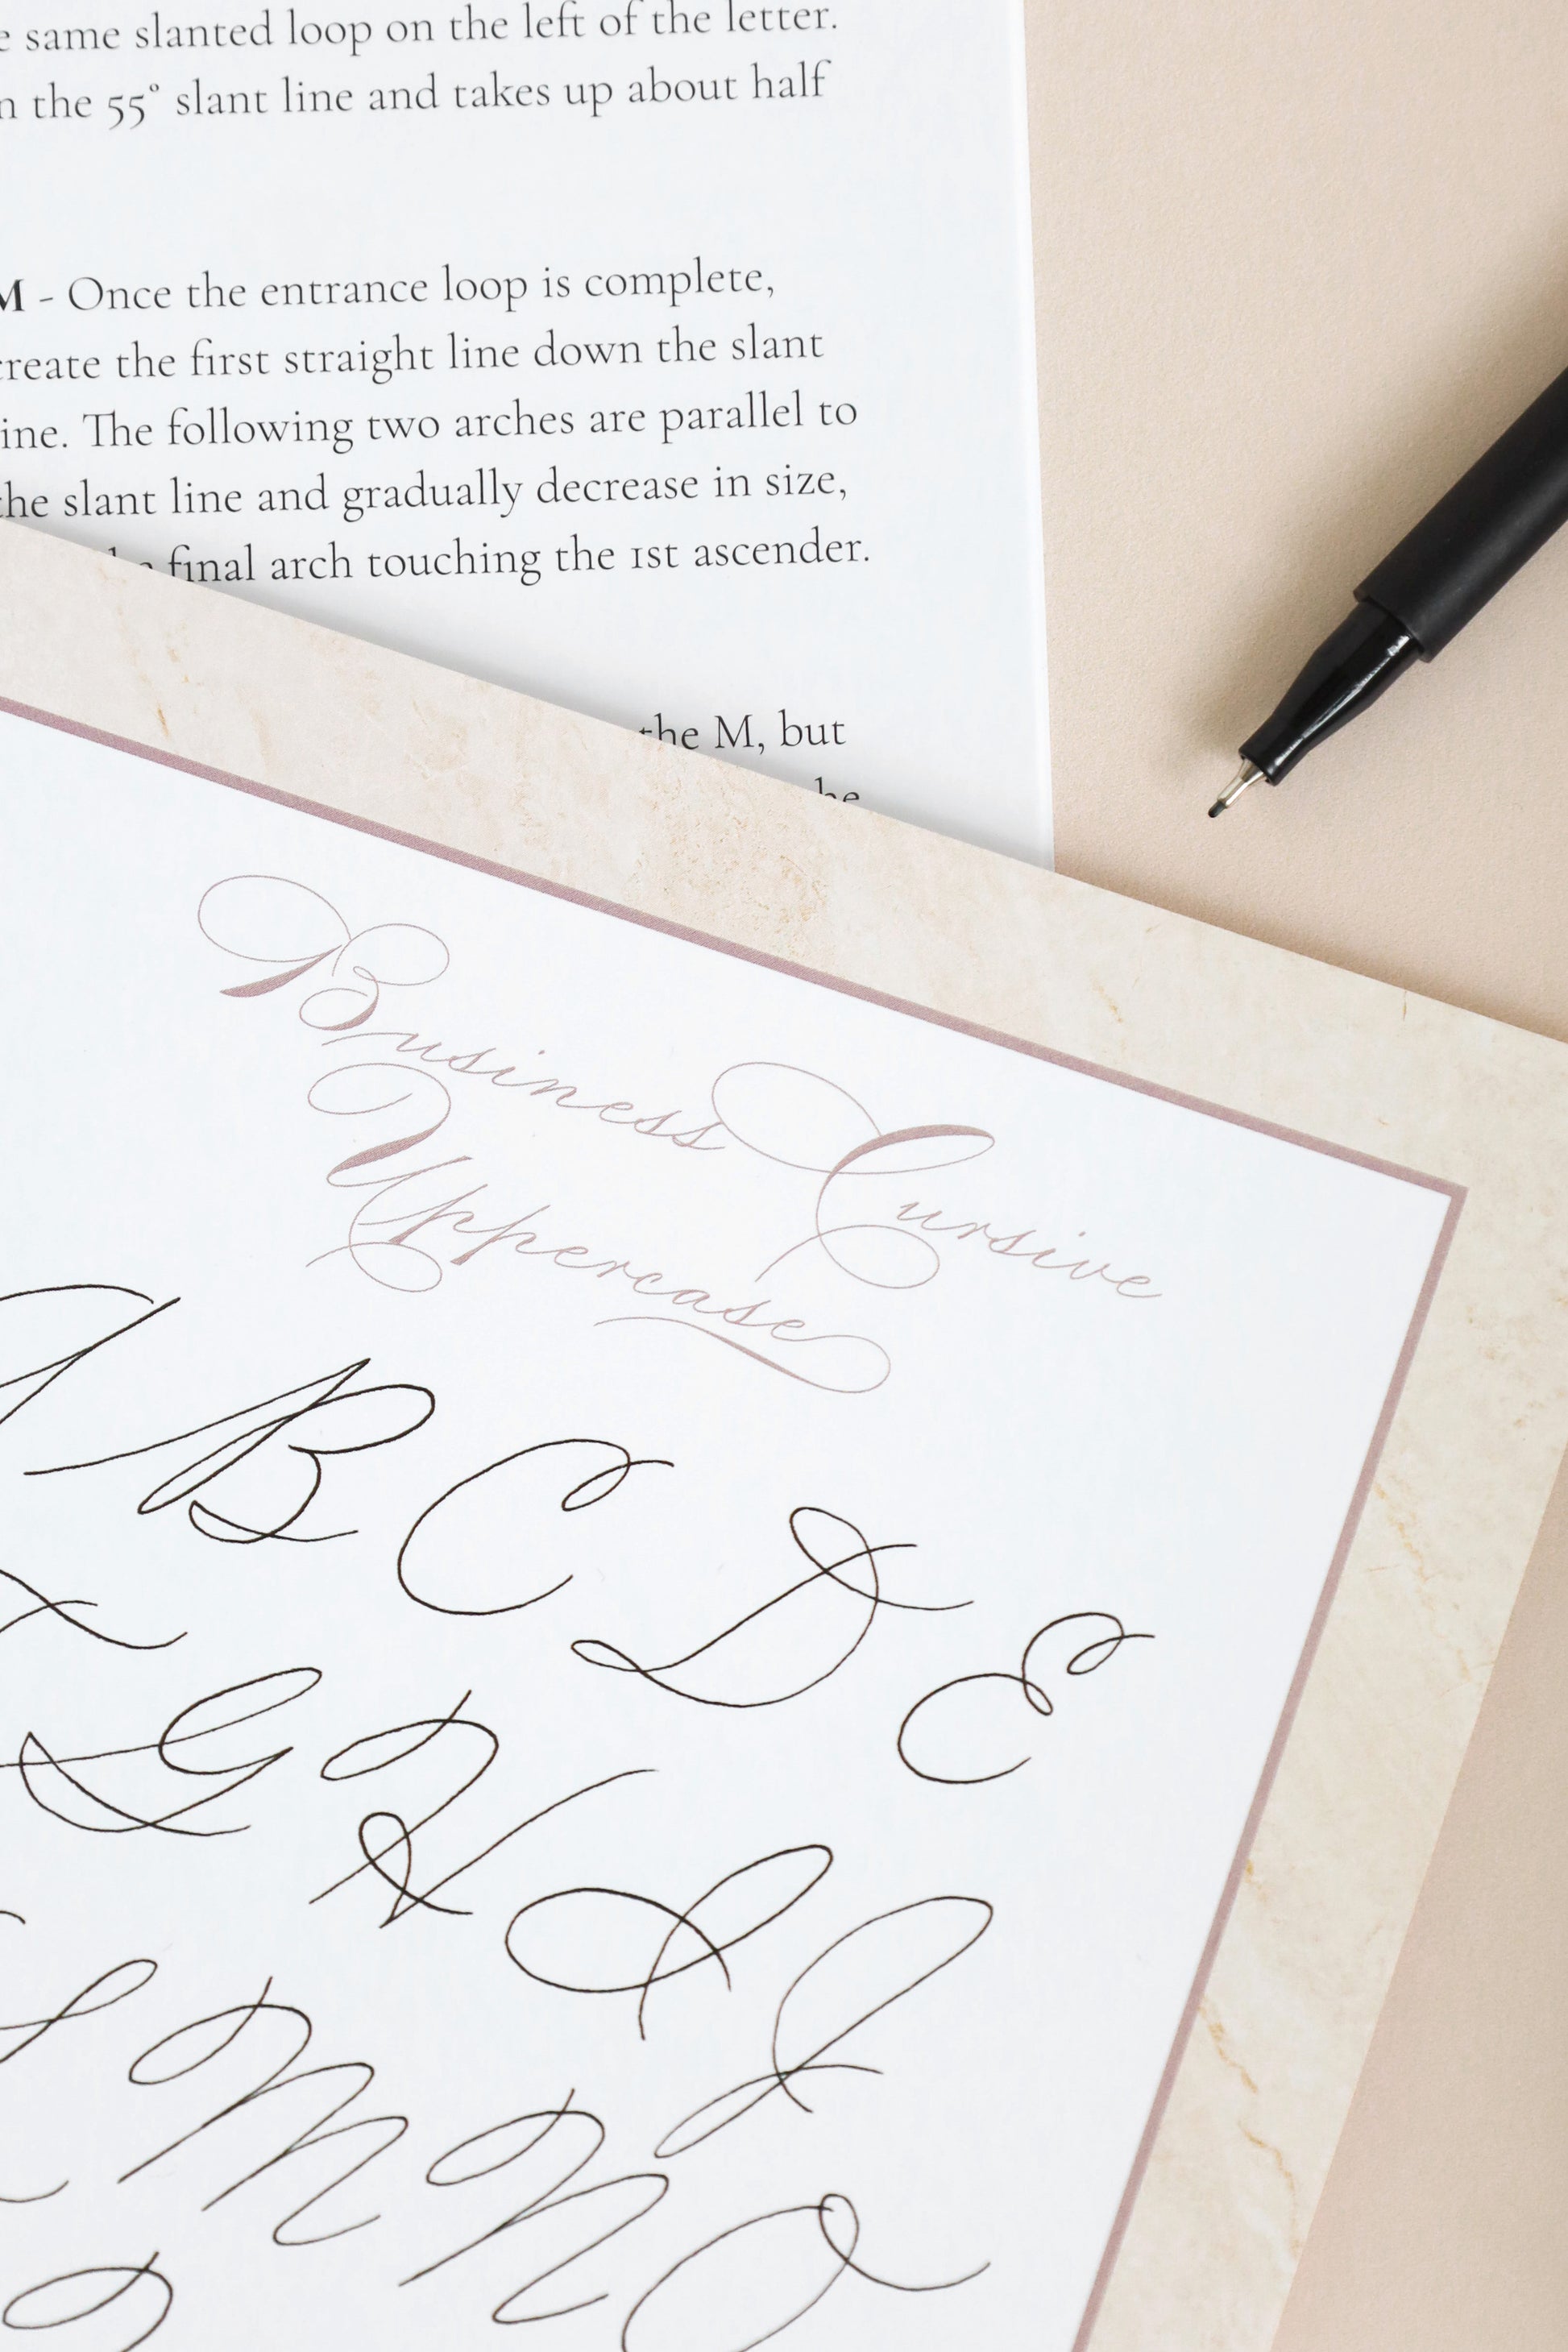 same slanted loop on the left of the letter.
the 55° slant line and takes up about half
M - Once the entrance loop is complete,
create the first straight line down the slant
line. The following two arches are parallel to
the slant line and gradually decrease in size,
final arch touching the 1st ascender.
the M, but
Business Cursive
Uppercase
A B C D E
F G H I J
L M N O